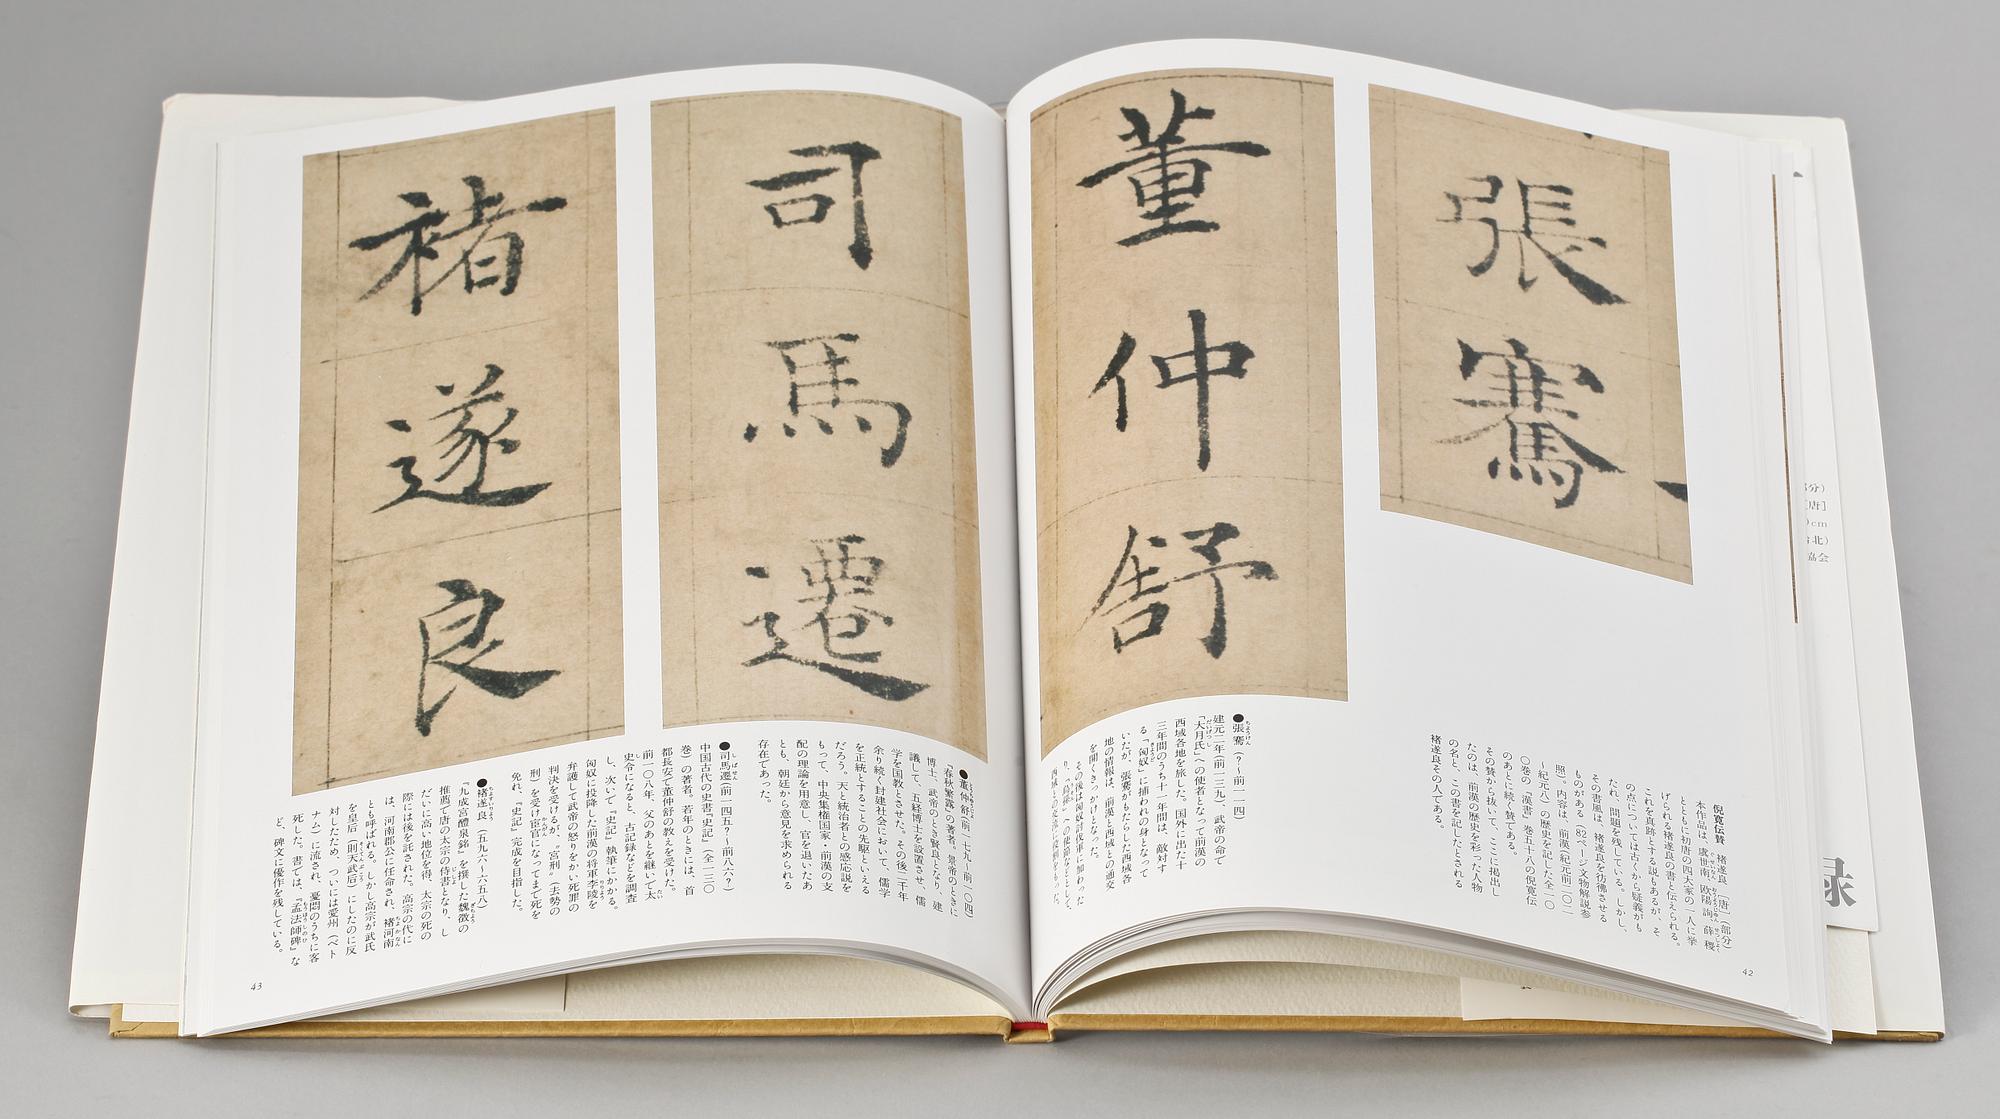 張騫
董仲舒
司馬遷
褚遂良
倪寛伝賛　褚遂良［唐］（部分）
本作品は、虞世南、欧陽詢、薛稷
とともに初唐の四大家の一人に挙
げられる褚遂良の書と伝えられる。
これを真跡とする説もあるが、そ
の点については古くから疑義がも
たれ、問題を残している。しかし、
その書風は、褚遂良を彷彿させる
ものがある（82ページ文物解説参
照）。内容は、前漢（紀元前二〇二
〜紀元八）の歴史を記した全一〇
〇巻の『漢書』巻五十八の倪寛伝
のあとに続く賛である。
その賛から抜いて、ここに掲出し
たのは、前漢の歴史を彩った人物
の名と、この書を記したとされる
褚遂良その人である。
●張騫（？〜前一一四）
建元二年（前一三九）、武帝の命で
「大月氏」への使者となって前漢の
西域各地を旅した。国外に出た十
三年間のうち十一年間は、敵対す
る「匈奴」に捕われの身となって
いたが、張騫がもたらした西域各
地の情報は、前漢と西域との通交
を開くきっかけとなった。
その後は匈奴討伐軍に加わった
●董仲舒（前一七九〜前一〇四）
『春秋繁露』の著者。景帝のときに
博士、武帝のとき賢良となり、建
議して、五経博士を設置させ、儒
学を国教とさせた。その後二千年
余り続く封建社会において、儒学
を正統とすることの先駆といえる
だろう。天と統治者との感応説を
もって、中央集権国家・前漢の支
配の理論を用意し、官を退いたあ
とも、朝廷から意見を求められる
存在であった。
●司馬遷（前一四五？〜前八六？）
中国古代の史書『史記』（全一三〇
巻）の著者。若年のときには、首
都長安で董仲舒の教えを受けた。
前一〇八年、父のあとを継いで太
史令になると、古記録などを調査
し、次いで『史記』執筆にかかる。
匈奴に投降した前漢の将軍李陵を
弁護して武帝の怒りをかい死罪の
判決を受けるが、"宮刑"（去勢の
刑）を受け宦官になってまで死を
免れ、『史記』完成を目指した。
●褚遂良（五九六〜六五八）
『九成宮醴泉銘』を撰した魏徴の
推薦で唐の太宗の侍書となり、し
だいに高い地位を得、太宗の死の
際には後を託された。高宗の代に
は、河南郡公に任命され、褚河南
とも呼ばれる。しかし高宗が武氏
を皇后（則天武后）にしたのに反
対したため、ついには愛州（ベト
ナム）に流され、憂悶のうちに客
死した。書では、『孟法師碑』な
ど、碑文に優作を残している。
42
43